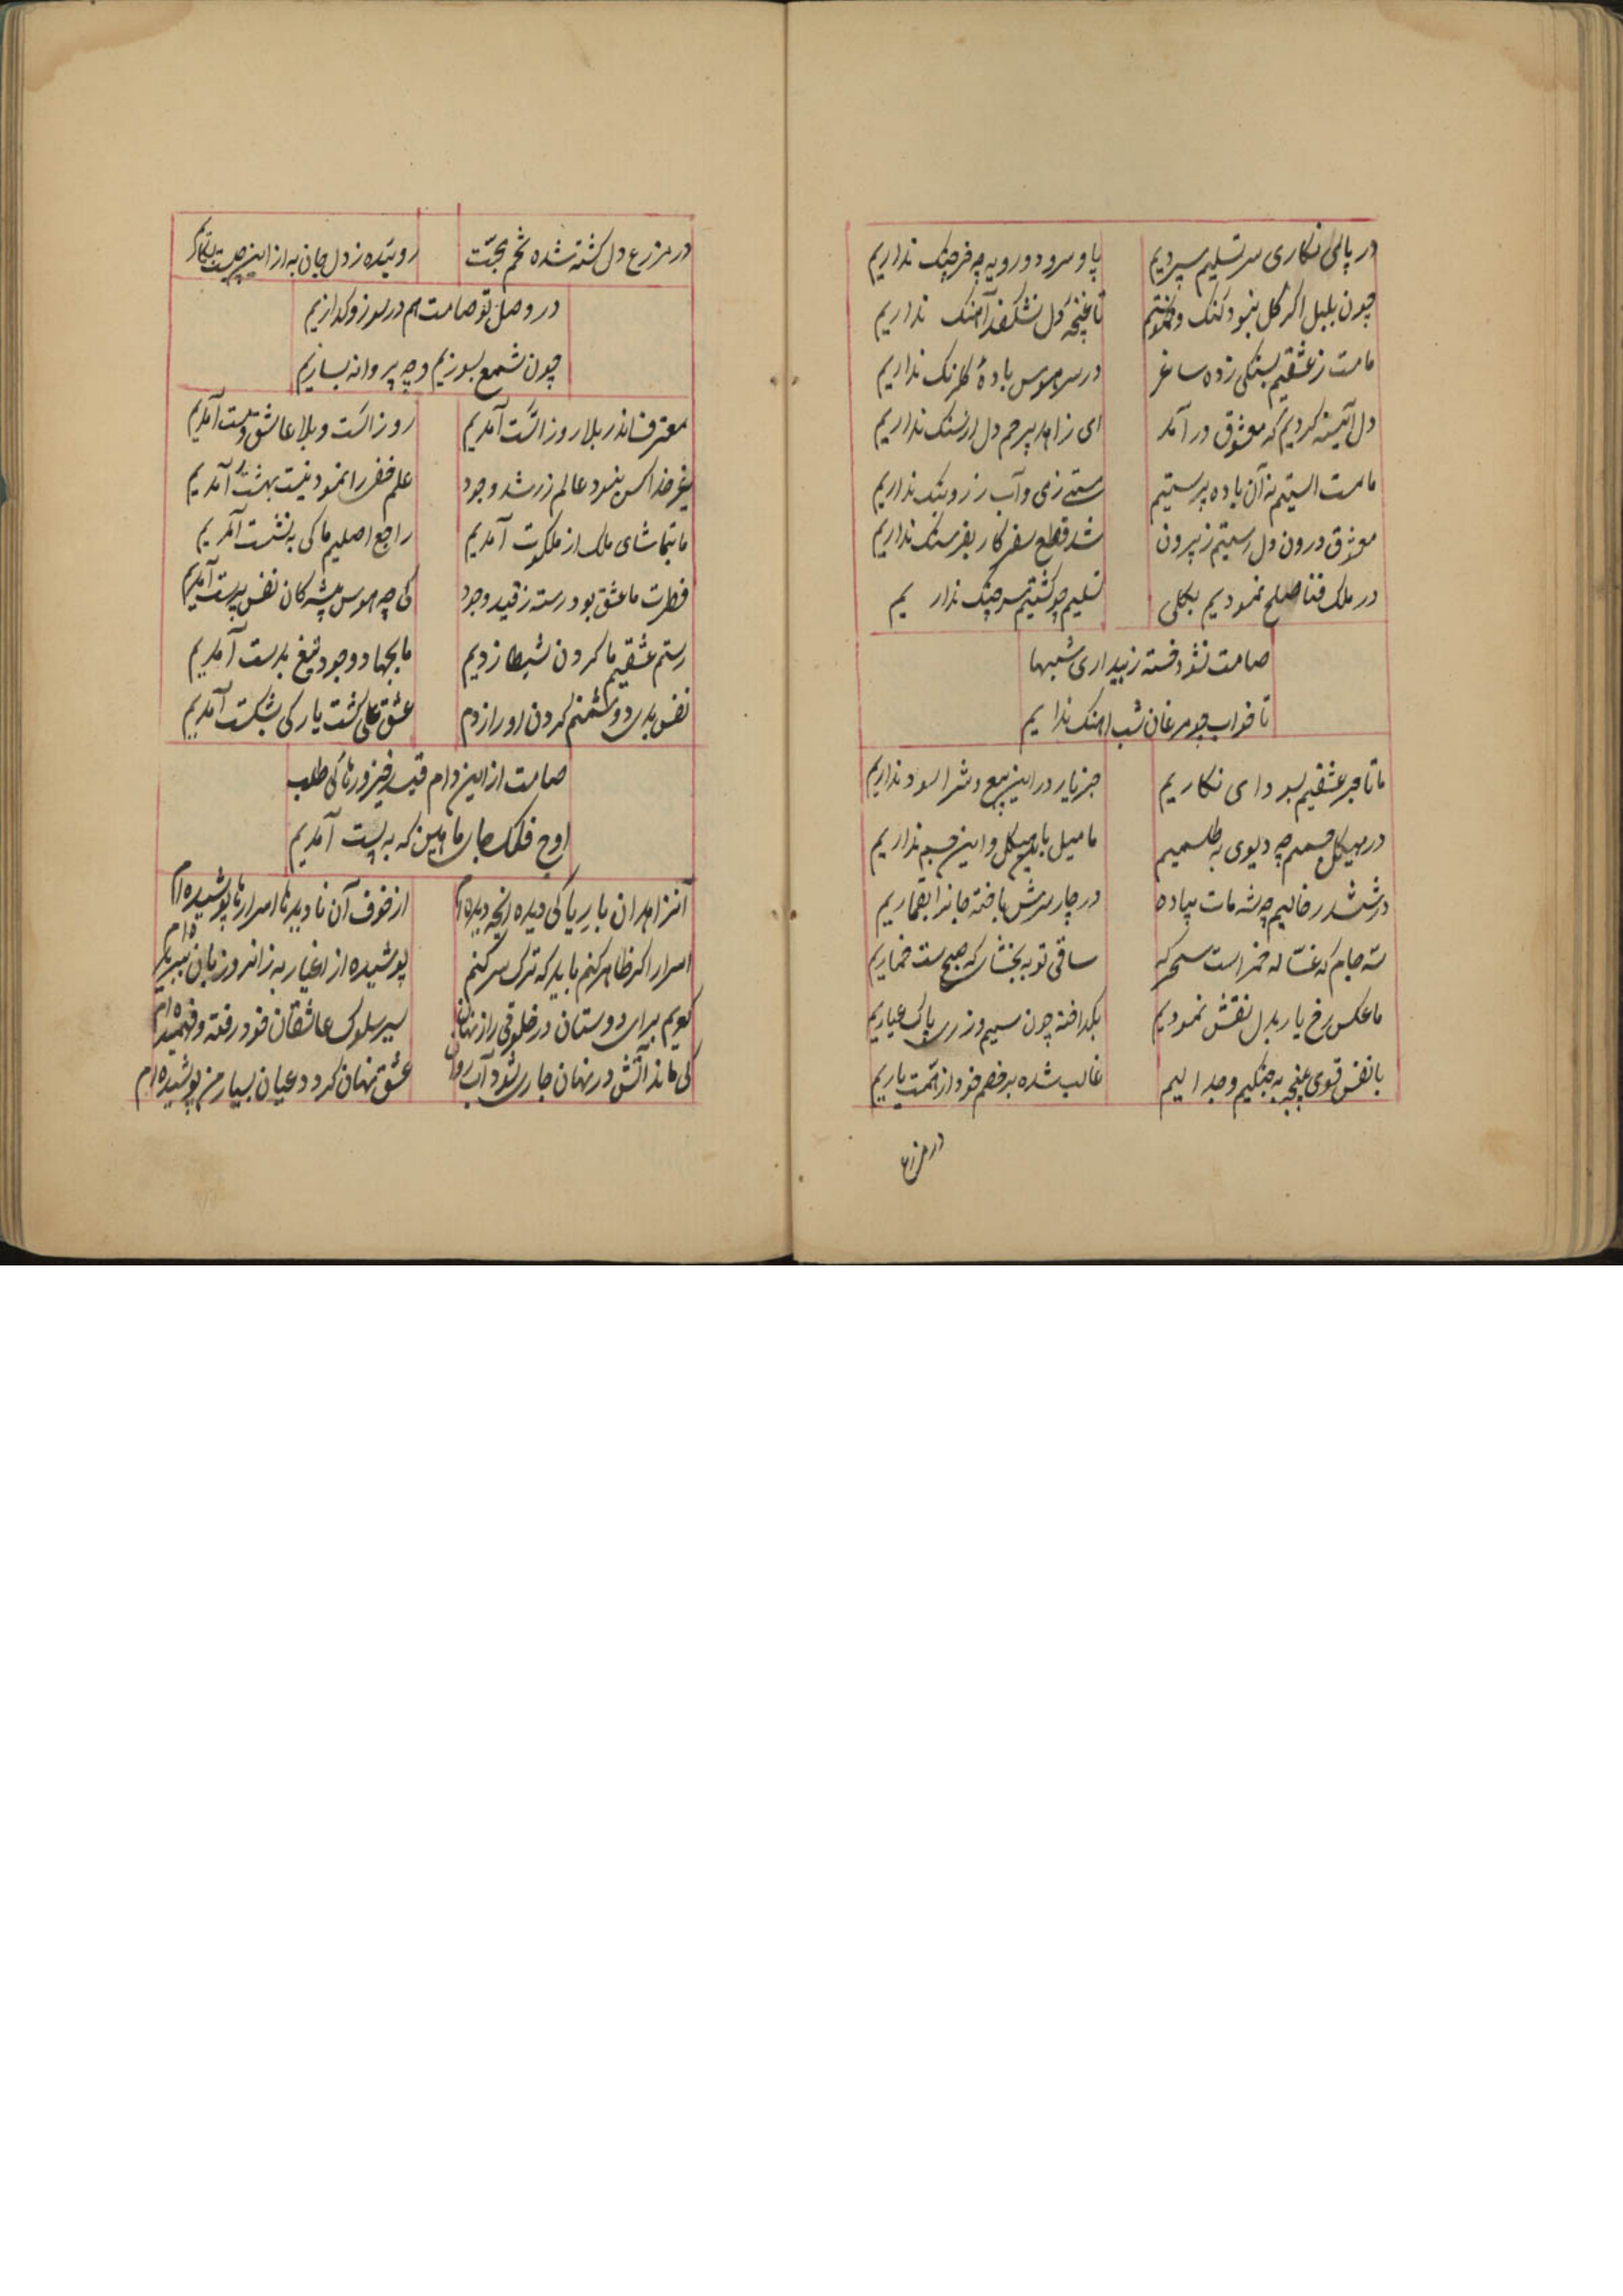 در پای نگاری سر تسلیم سپردیم پا و سر و دو رویه چه خرچنک نداریم
چون بلبل اگر گل نبود کنک و خموشیم تا غنچهٔ دل نشکفد آهنک نداریم
ما مست ز عشقیم بسنکی زده ساغر در سر هوس بادهٔ گلرنک نداریم
دل آینه کردیم که معشوق در آمد ای زاهد بیرحم دل از سنک نداریم
ما مست الستیم نه آن باده پرستیم مستی ز می و آب رز و بنک نداریم
معشوق درون دل رستیم ز بیرون شد قطع سفر کار بفرسنک نداریم
در ملک فنا صلح نمودیم بکلی تسلیم چو کشتیم سر جنک نداریم
صامت نشود خسته ز بیداری شبها
تا خواب چو مرغان شب اهنک نداریم
ما تاجر عشقیم بسودای نکاریم جز یار در این بیع و شرا سود نداریم
در هیکل جسمیم چه دیوی به طلسمیم ما میل باین هیکل و این جسم نداریم
در ششدر خالیم چه شه مات پیاده در چار سرش باخته جانرا بقماریم
سه جام که غساله خمر است سحرکه ساقی تو ببخشا که صبح ست خماریم
ما عکس رخ یار بدل نقش نمودیم بکداخته چون سیم و زر پاک عیاریم
با نفس قوی پنجه به جنکیم و جدالیم غالب شده بر خصم خود از همت یاریم
در مزرع
در مزرع دل کشته شده تخم محبت روئیده ز دل جان به از این چیست بکاریم
در وصل تو صامت هم در سوز و کدازیم
چون شمع بسوزیم و چه پروانه بسازیم
معترف اندر بلا روز الست آمدیم روز الست و بلا عاشق و مست آمدیم
غیر خدا کس نبود عالم زر شد وجود علم خضر رانمود نیست بهشت آمدیم
ما بتماشای ملک از ملکوت آمدیم راجع اصلیم ما کی به نشست آمدیم
فطرت ما عشق بود رسته ز قید وجود کی چه هوس پیشه کان نفس پرست آمدیم
رستم عشقیم ما کردن شیطا زدیم ما بجهاد وجود تیغ بدست آمدیم
نفس بدی دشمنم کردن او را زدم عشق علی کشت یار کی بشکست آمدیم
صامت از این دام قید خیز و رهائی طلب
اوج فلک جای ما بین که به پست آمدیم
آنزاهدان با ریا کی دیده انچه دیده‌ام از خوف آن نادیدها اسرارها پوشیده‌ام
اسرار اکر ظاهر کنم باید که ترک سر کنم پوشیده از اغیار به زانرو زبان ببریده‌ام
کویم برای دوستان در خلوتی راز نهان سیر سلوک عاشقان خود رفته و فهمیده‌ام
کی ماند آتش در نهان جاری شود آب روان عشق نهان کردد عیان بسیار من پوشیده‌ام